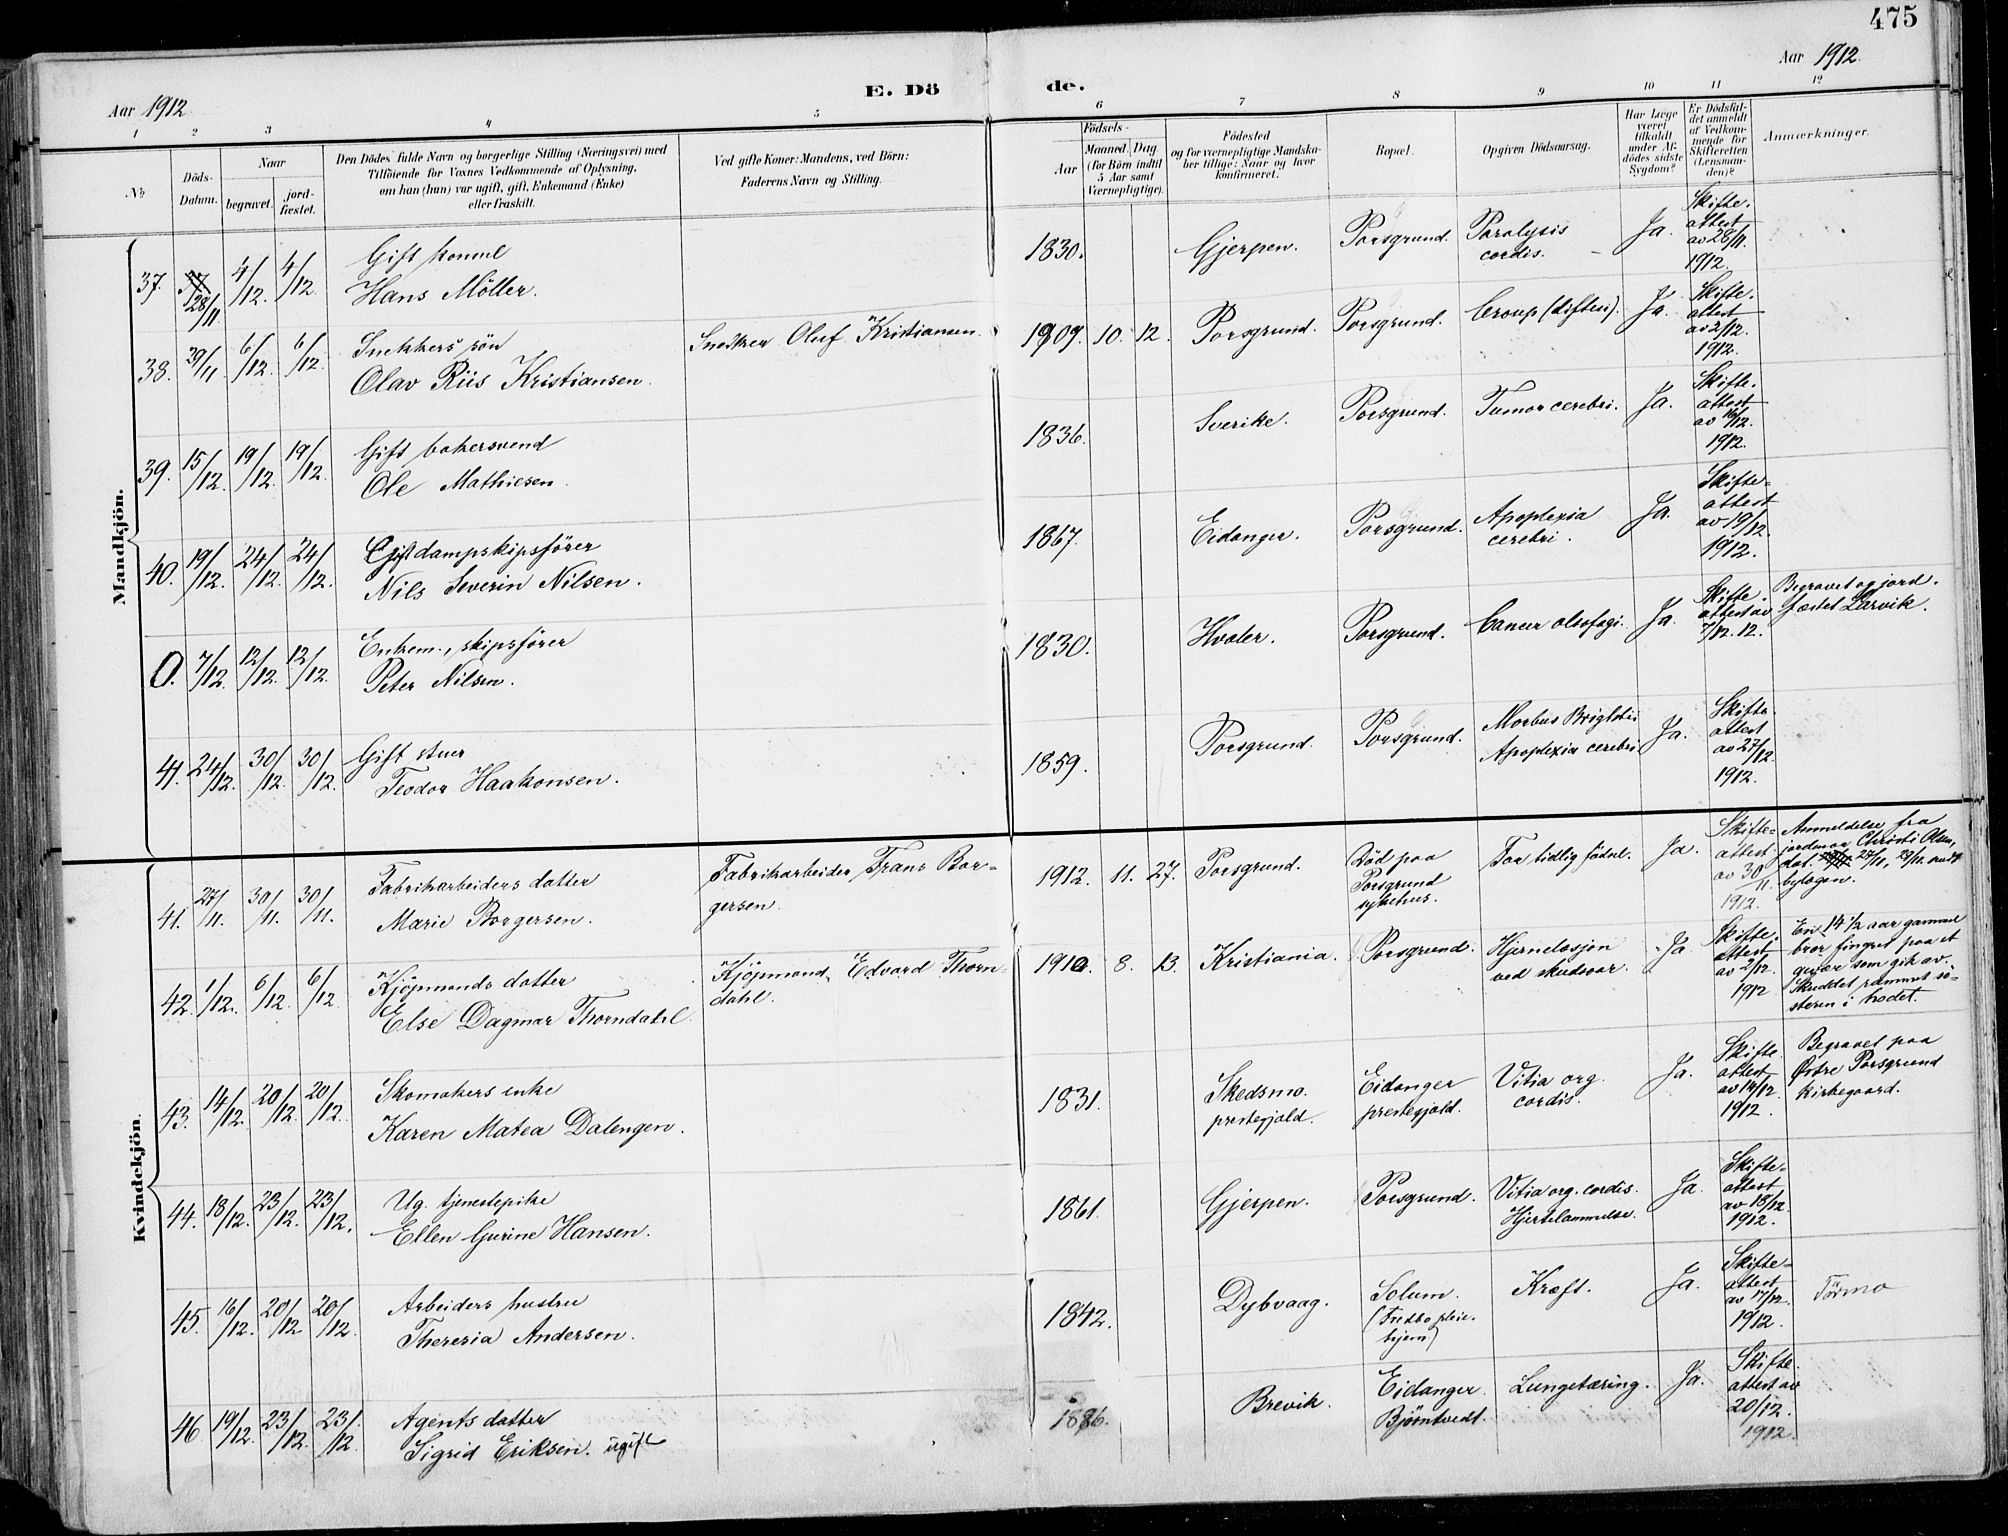 475
Aar 1912.
Aar 1912.
E. Dö de.
1 2 3 4 5 6 7 8 9 10 11 12
No
Döds-
Datum.
Naar
begravet.
jord-
fæstet.
Den Dödes fulde Navn og borgerlige Stilling (Næringsvei) med
Tilföiende for Voxnes Vedkommende af Oplysning,
om han (hun) var ugift, gift, Enkemand (Enke)
eller fraskilt.
Ved gifte Koner: Mandens, ved Börn:
Faderens Navn og Stilling.
Födsels-
Aar
Maaned. Dag.
(for Börn indtil
5 Aar samt
Værnepligtige).
Födested
og for værnepligtige Mandska-
ber tillige: Naar og hvor
konfirmeret.
Bopæl.
Opgiven Dödsaarsag.
Har Læge
været
tilkaldt
under Af-
dödes sidste
Sygdom?
Er Dödsfal-
det anmeldt
af Vedkom-
mende for
Skifteretten
(Lensman-
den)?
Anmærkninger.
Mandkjön.
37. 28/11 4/12. 4/12. Gift konsul
Hans Möller.
1830. Gjerpen. Porsgrund. Paralysis
cordis. Ja. Skifte-
attest
av 28/11.
1912.
38. 29/11 6/12. 6/12. Snekkers sön
Olav Riis Kristiansen.
Snedker Oluf Kristiansen.
1909. 10. 12. Porsgrund. Porsgrund. Croup (difteri). Ja. Skifte-
attest
av 2/12.
1912.
39. 15/12. 19/12. 19/12. Gift bakersvend
Ole Mathiesen.
1836. Sverike. Porsgrund. Tumor cerebri. Ja. Skifte-
attest
av 16/12.
1912.
40. 19/12. 24/12. 24/12. Gift dampskipsförer
Nils Severin Nilsen.
1867. Eidanger. Porsgrund. Apoplexia
cerebri. Ja. Skifte-
attest
av 19/12.
1912.
0. 7/12. 12/12. 12/12. Enkem., skipsförer
Peter Nilsen.
1830. Hvaler. Porsgrund. Cancer olsofagi. Ja. Skifte-
attest av
7/12. 12.
Begravet og jord-
fæstet Larvik.
41. 24/12. 30/12. 30/12. Gift stuer
Teodor Haakonsen.
1859. Porsgrund. Porsgrund. Morbus Brightii
Apoplexia cerebri Ja. Skifte-
attest
av 27/12
1912.
Kvindekjön.
41. 27/11. 30/11. 30/11. Fabrikarbeiders datter
Marie Borgersen.
Fabrikarbeider Frans Bor-
gersen.
1912. 11. 27. Porsgrund. Död paa
Porsgrund
sykehus. For tidlig födsel. Ja. Skifte-
attest
av 30/11.
1912.
Anmeldelse fra
jordmor Christi Olsen,
dat. 27/11, 29/11
bylægen.
42. 1/12. 6/12. 6/12 Kjöpmands datter
Else Dagmar Thorndahl.
Kjöpmand Edvard Thorn-
dahl.
1910. 8. 13. Kristiania. Porsgrund. Hjernelæsjon
ved skudsaar. Ja. Skifte-
attest
av 2/12.
1912
En 14 1/2 aar gammel
bror fingret paa et
gevær som gik av.
Skuddet rammet sö-
steren i hodet.
43. 14/12. 20/12. 20/12. Skomakers enke
Karen Matea Dalengen.
1831. Skedsmo
prestegjald. Eidanger
prestegjald. Vitia org.
cordis. Ja. Skifte-
attest
av 14/12.
1912.
Begravet paa
Østre Porsgrund
kirkegaard.
44. 18/12. 23/12. 23/12. Ug. tjenestepike
Ellen Gurine Hansen.
1861. Gjerpen. Porsgrund. Vitia org. cordis.
Hjertelammelse. Ja. Skifte-
attest
av 18/12
1912.
45. 16/12. 20/12 20/12. Arbeiders hustru
Theresia Andersen.
1842. Dybvaag. Solum.
(Fredbo pleie-
hjem) Kræft. Ja. Skifte-
attest
av 17/12.
1912.
Törmo
46 19/12. 23/12. 23/12. Agents datter
Sigrid Eriksen. ugift
1886. Brevik. Eidanger
Bjørntvedt. Lungetæring. Ja. Skifte-
attest av
20/12.
1912.